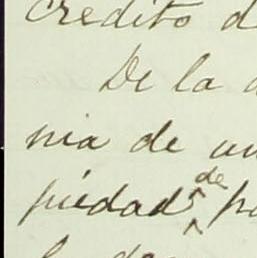 credito d
De la
nia de un
piedad de